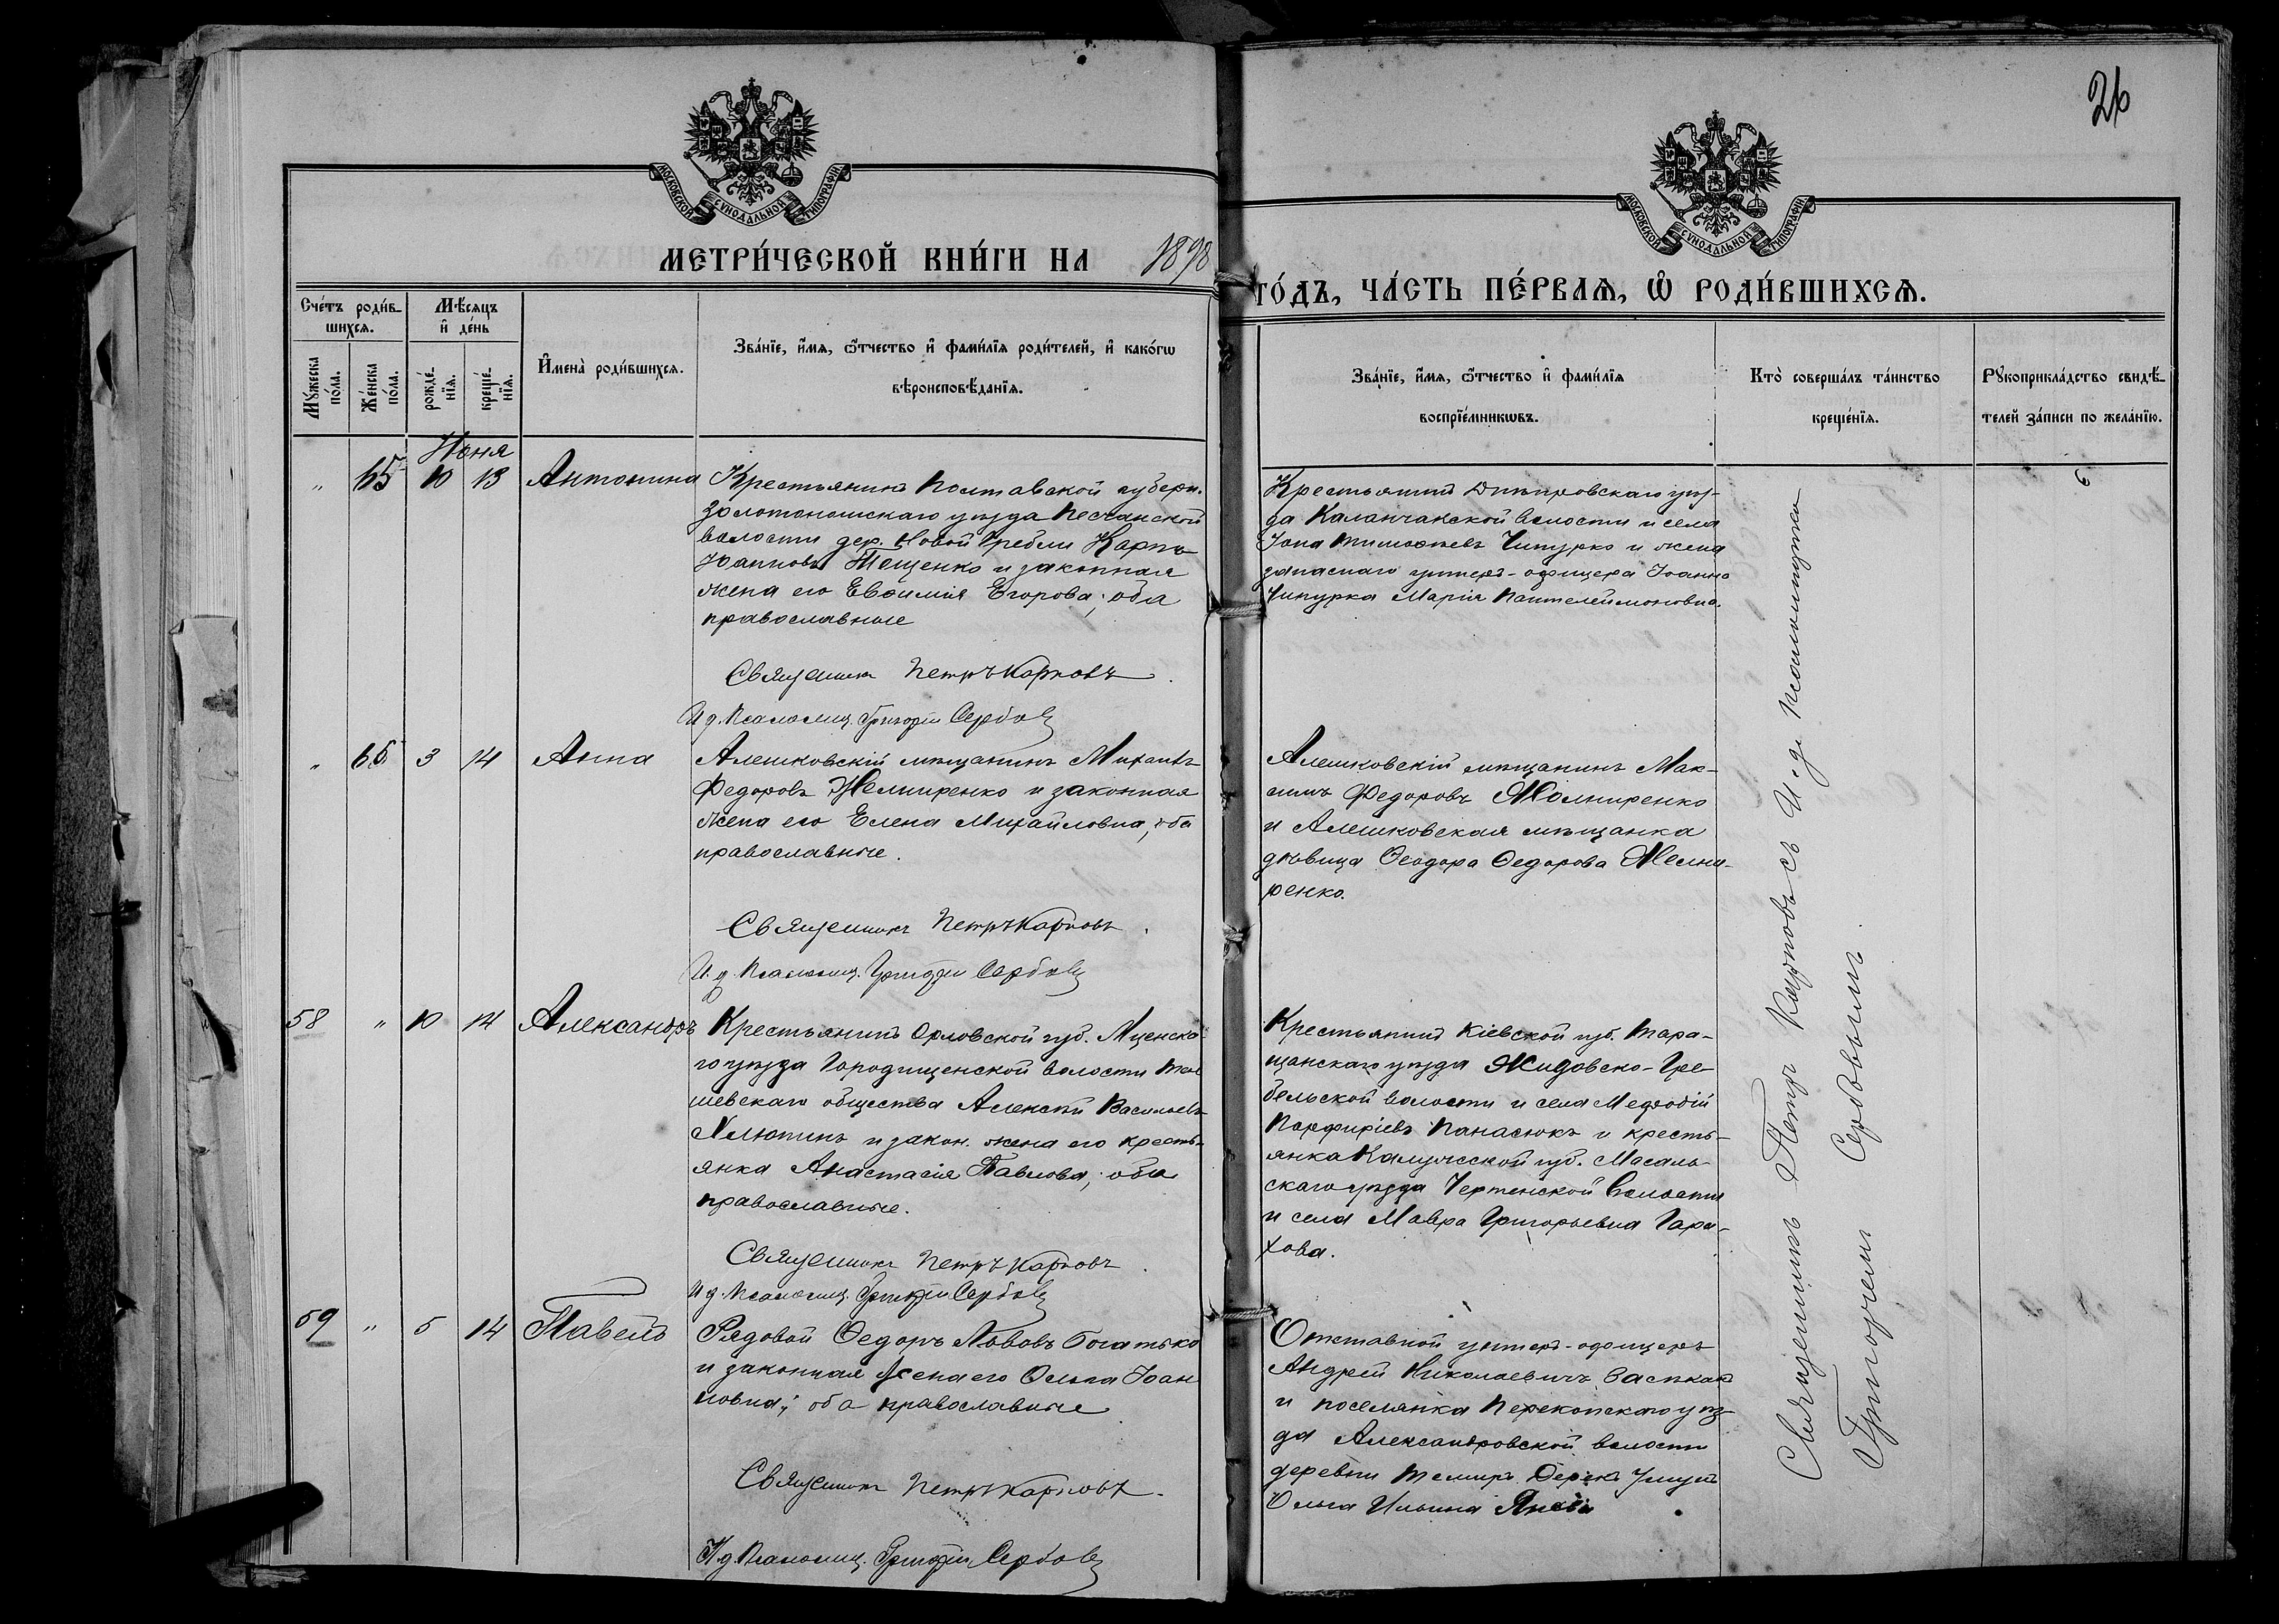 26
МОСКОВСКОЙ СУНОДАЛЬНОЙ ТИПОГРАФІИ
МОСКОВСКОЙ СУНОДАЛЬНОЙ ТИПОГРАФІИ
МЕТРИ́ЧЕСКОЙ КНИ́ГИ НА 1898
ГО́ДЪ, ЧА́СТЬ ПЕ́РВАѦ, Ѡ РОДИ́ВШИХСѦ.
Сче́тъ роди́в-
шихсѧ.
Мѣ́сѧцъ
и҆ де́нь
Мꙋжеска по́ла.
Же́нска по́ла.
рожде́-
нїѧ.
креще́-
нїѧ.
И҆мена̀ роди́вшихсѧ.
Зва́нїе, и҆́мѧ, ѻ҆́тчество и҆ фами́лїѧ роди́телей, и҆ како́гѡ
вѣроисповѣ́данїѧ.
Зва́нїе, и҆́мѧ, ѻ҆́тчество и҆ фами́лїѧ
воспрїе́мникѡвъ.
Кто̀ соверша́лъ та́инство
креще́нїѧ.
Рꙋкоприкла́дство свидѣ́-
телей за́писи по жела́нїю.
Июня
" 65 10 13 Антонина
Крестьянинъ Полтавской губерн.
Золотоношскаго уѣзда Песчанской
волости дер. Новой Гребли Карпъ
Іоанновъ Тещенко и законная
жена его Евѳимія Егорова; оба
православные
Священникъ Петръ Карповъ
И д. Псаломщ. Григорій Сербовъ
Крестьянинъ Днѣпровскаго уѣз-
да Каланчакской волости и села
Іона Тимоѳеевъ Чипурко и жена
запаснаго унтеръ-офицера Іоанна
Чипурка Марія Пантелеймоновна.
" 66 3 14 Анна
Алешковскій мѣщанинъ Михаилъ
Федоровъ Жемиренко и законная
жена его Елена Михайловна, оба
православные.
Священникъ Петръ Карповъ
И. д. Псаломщ. Григорій Сербовъ
Алешковскій мѣщанинъ Мак-
симъ Федоровъ Жемиренко
и Алешковская мѣщанка
дѣвица Ѳеодора Ѳедорова Жеми-
ренко.
58 " 10 14 Александръ
Крестьянинъ Орловской губ. Мценска-
го уѣзда Городищенской волости
шевскаго общества Алексѣй Васильевъ
Хлютинъ и закон. жена его кресть-
янка Анастасія Павлова; оба
православные.
Священникъ Петръ Карповъ
И д. Псаломщ. Григорій Сербовъ
Крестьянинъ Кіевской губ. Тара-
щанскаго уѣзда Жидовско-Гре-
бельской волости и села Меѳодій
Порфиріевъ Панасюкъ и кресть-
янка Калужской губ. Масаль-
скаго уѣзда Чертенской волости
и села Мавра Григорьевна Гора-
хова.
59 " 5 14 Павелъ
Рядовой Ѳедоръ Львовъ Богатько
и законная жена его Ольга Іоан-
новна; оба православные
Священникъ Петръ Карповъ
И д. Псаломщ. Григорій Сербовъ
Отставной унтеръ-офицеръ
Андрей Николаевичъ
и поселянка Перекопскаго уѣз-
да Александровской волости
деревни
Ольга Ильина
Священникъ Петръ Карповъ съ И. д. псаломщика
Григоріемъ Сербовымъ.